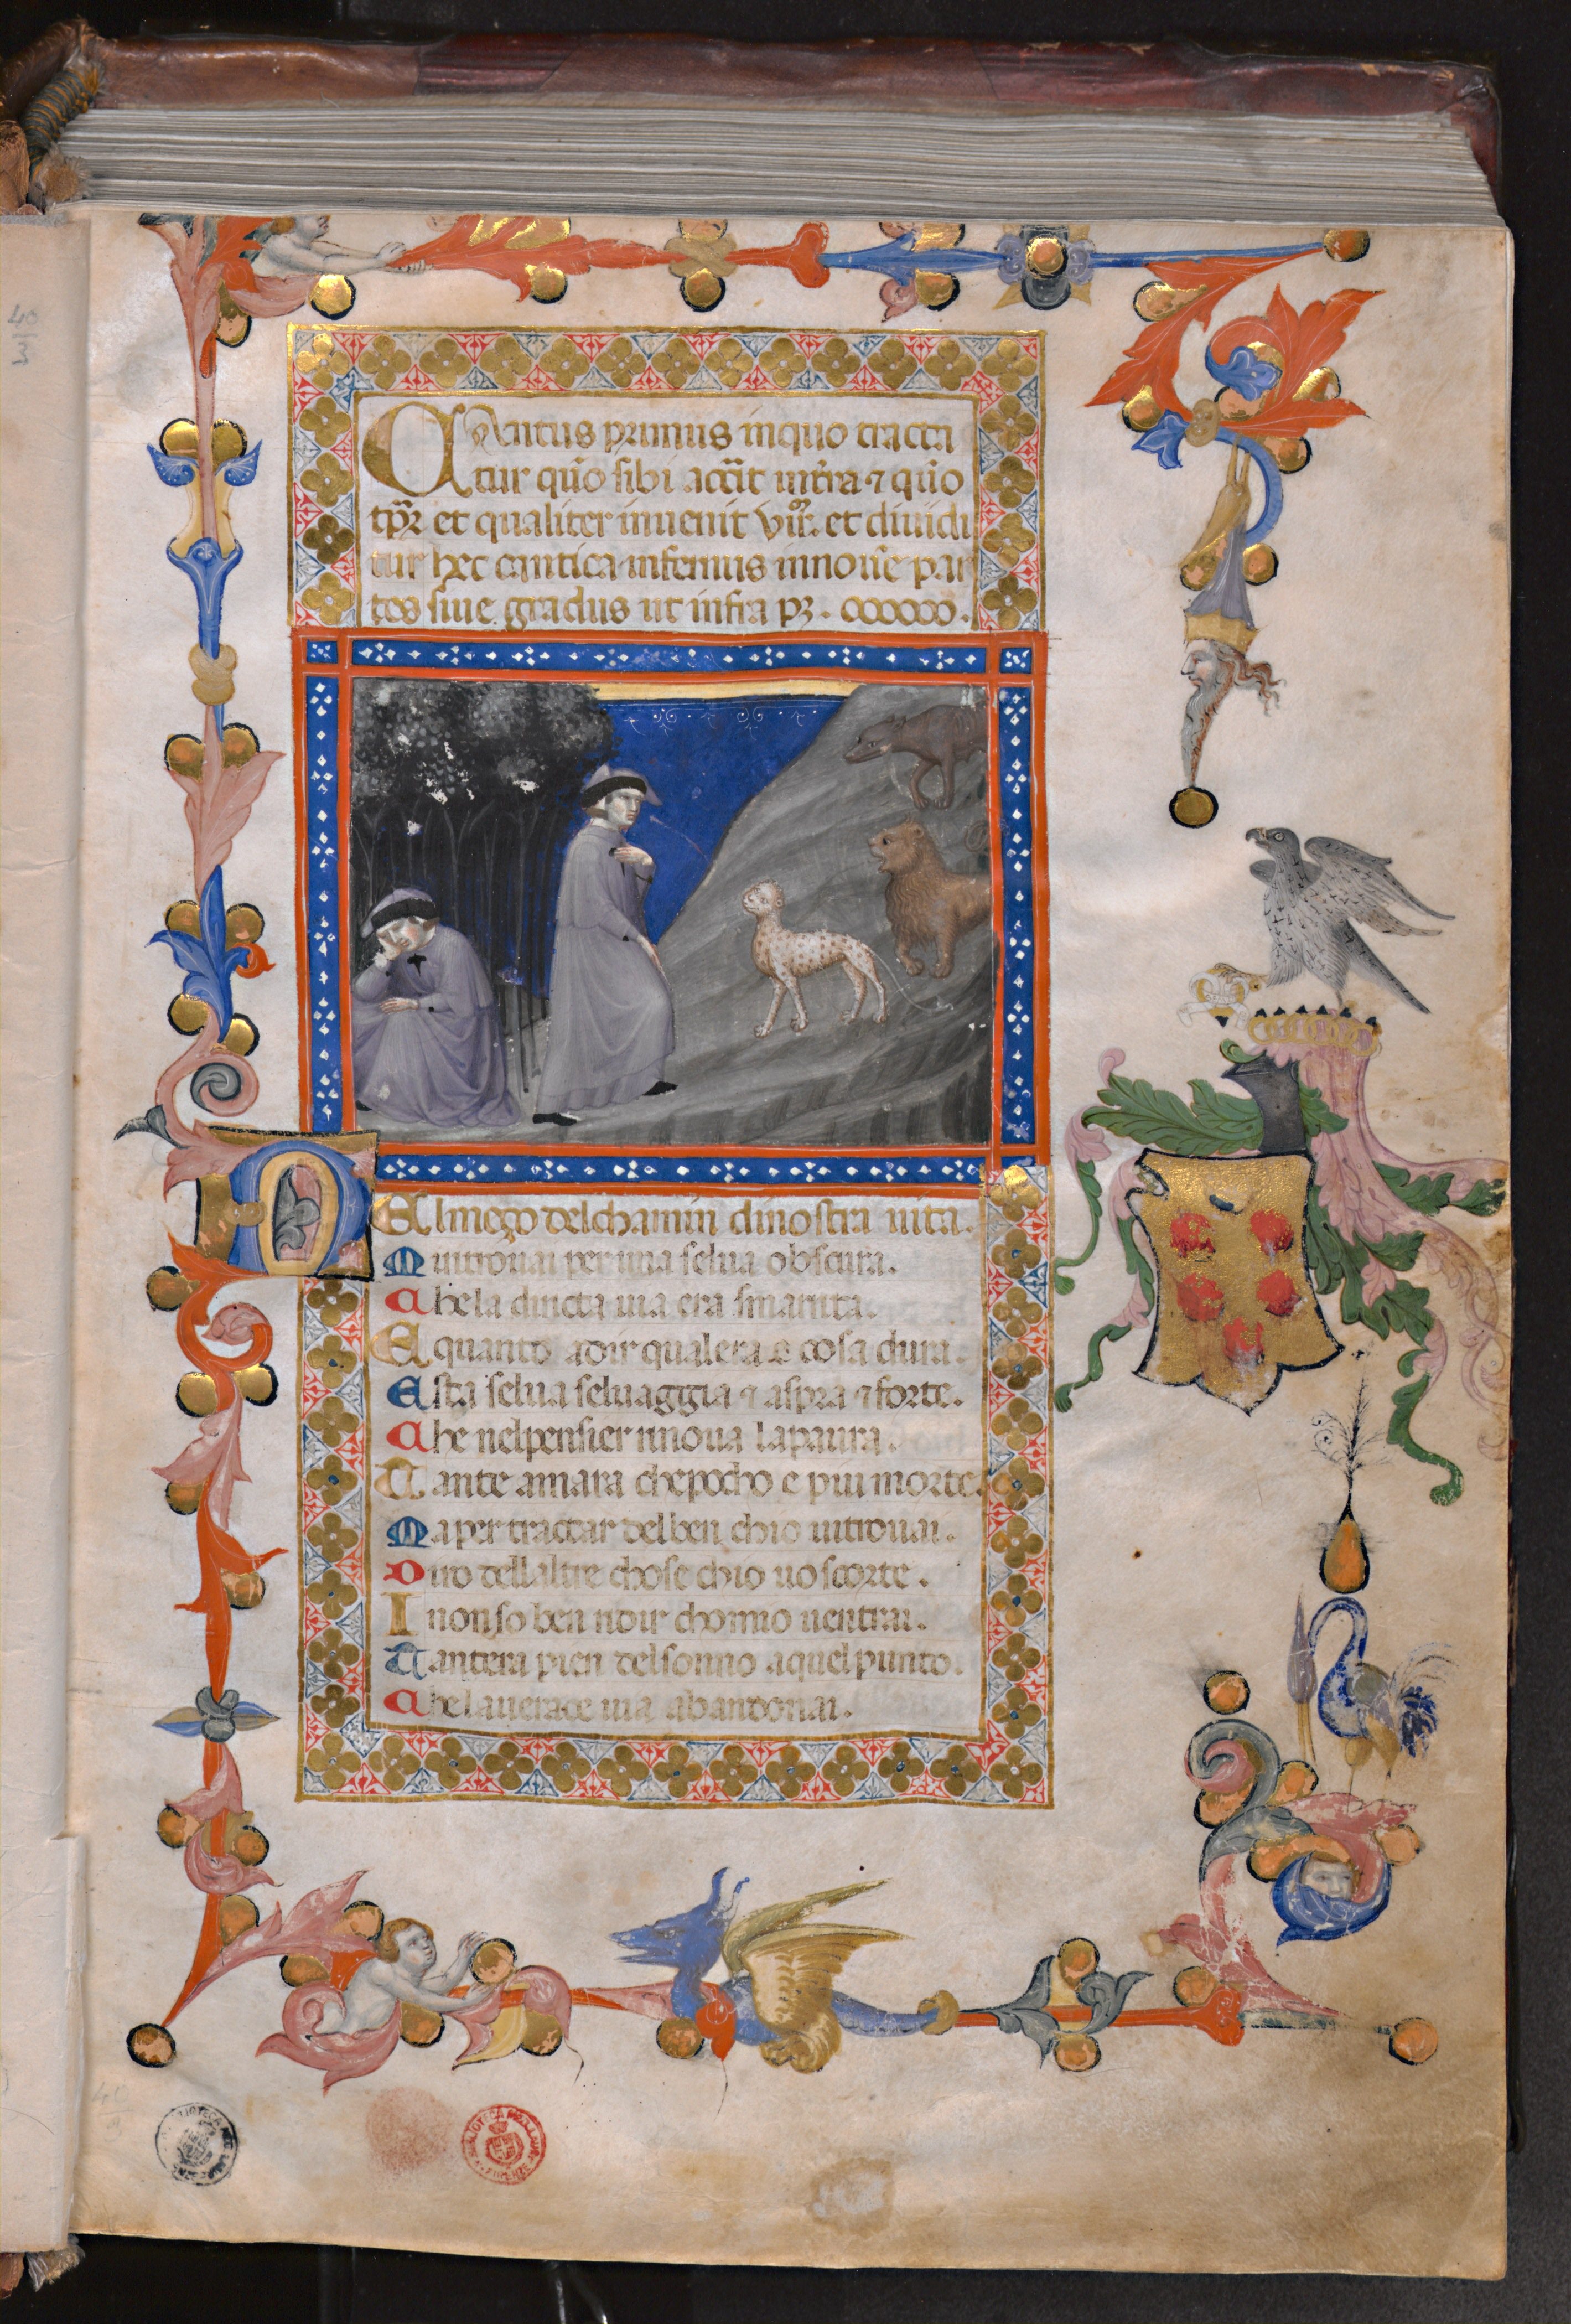 Cantus primus in quo tracta
tur qūo sibi acc̄it int̄ra ⁊ qūo
tp̄r et qualiter inuenit vir̄. et diuidi
tur hec cantica infernus in nou̅e par
tes siue gradus ut infra pꝫ. oooooo.
NEl meço del chamin di nostra uita.
Mi ritrouai per una selua obscura.
Che la diricta uia era smarrita.
E quanto a dir qual era e cosa dura.
Esta selua seluaggia ⁊ aspra ⁊ forte.
Che nel pensier rinoua la paura.
Tante amara che pocho e piu morte.
Ma per tractar del ben chio ui trouai.
Diro dellaltre chose chio uo scorte.
I non so ben ridir chomio uentrai.
Tantera pien del sonno a quel punto.
Che la uerace uia abandonai.